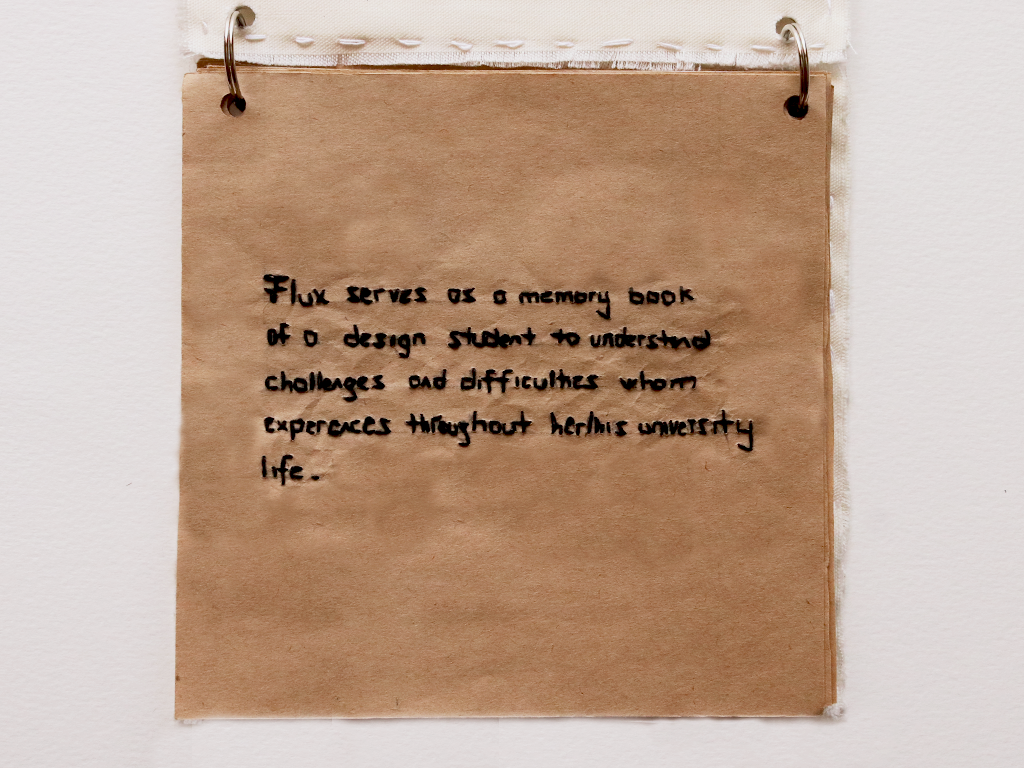 Flux serves as a memory book
of a design student to understand
challenges and difficulties whom
experences throughout her/his university
life.